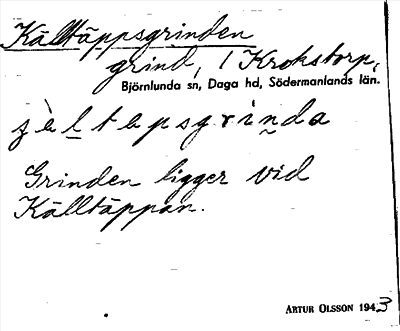 Källtäppsgrinden
grind, 1 Krokstorp,
Björnlunda sn, Daga hd, Södermanlands län.
Grinden ligger vid
Källtäppan.
ARTUR OLSSON 1943